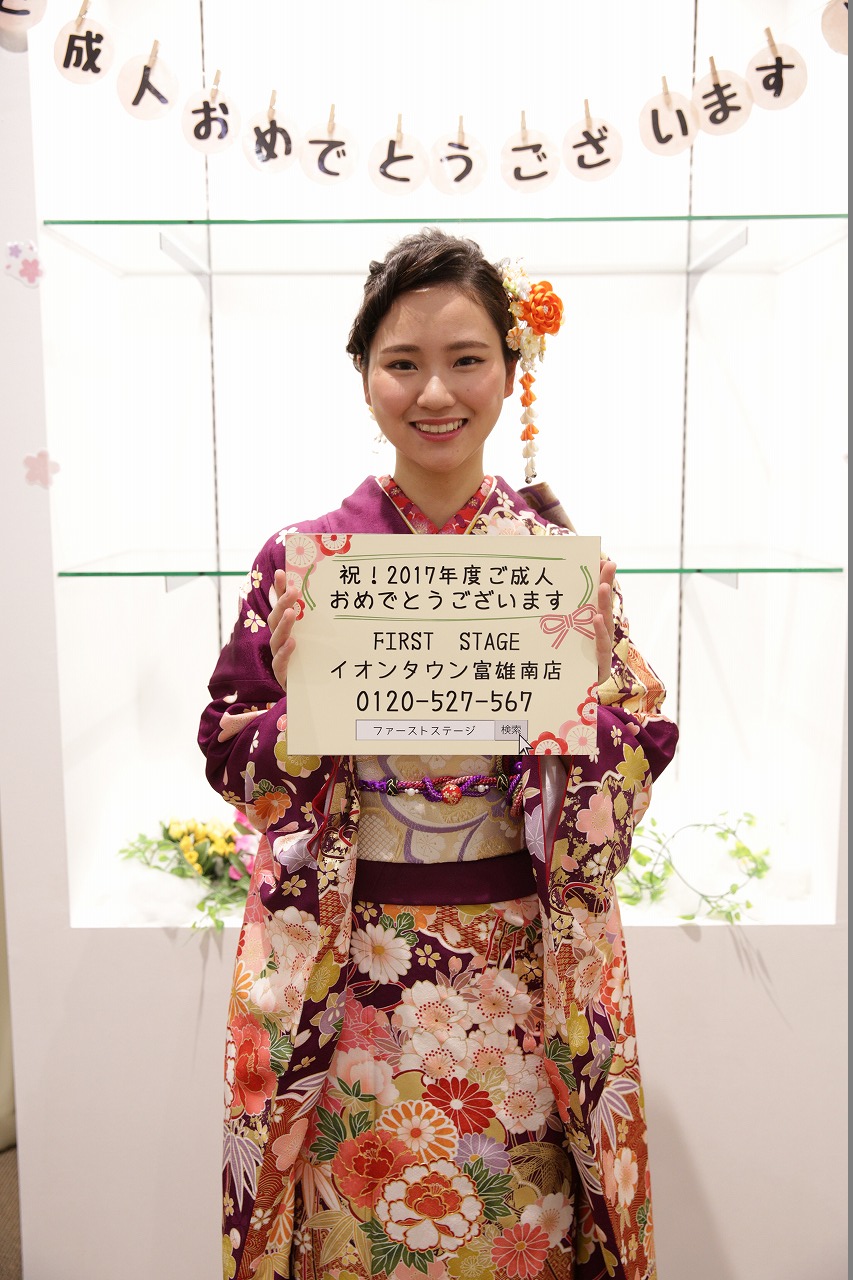 ご成人おめでとうございます
祝！2017年度ご成人
おめでとうございます
FIRST STAGE
イオンタウン富雄南店
0120-527-567
ファーストステージ 検索